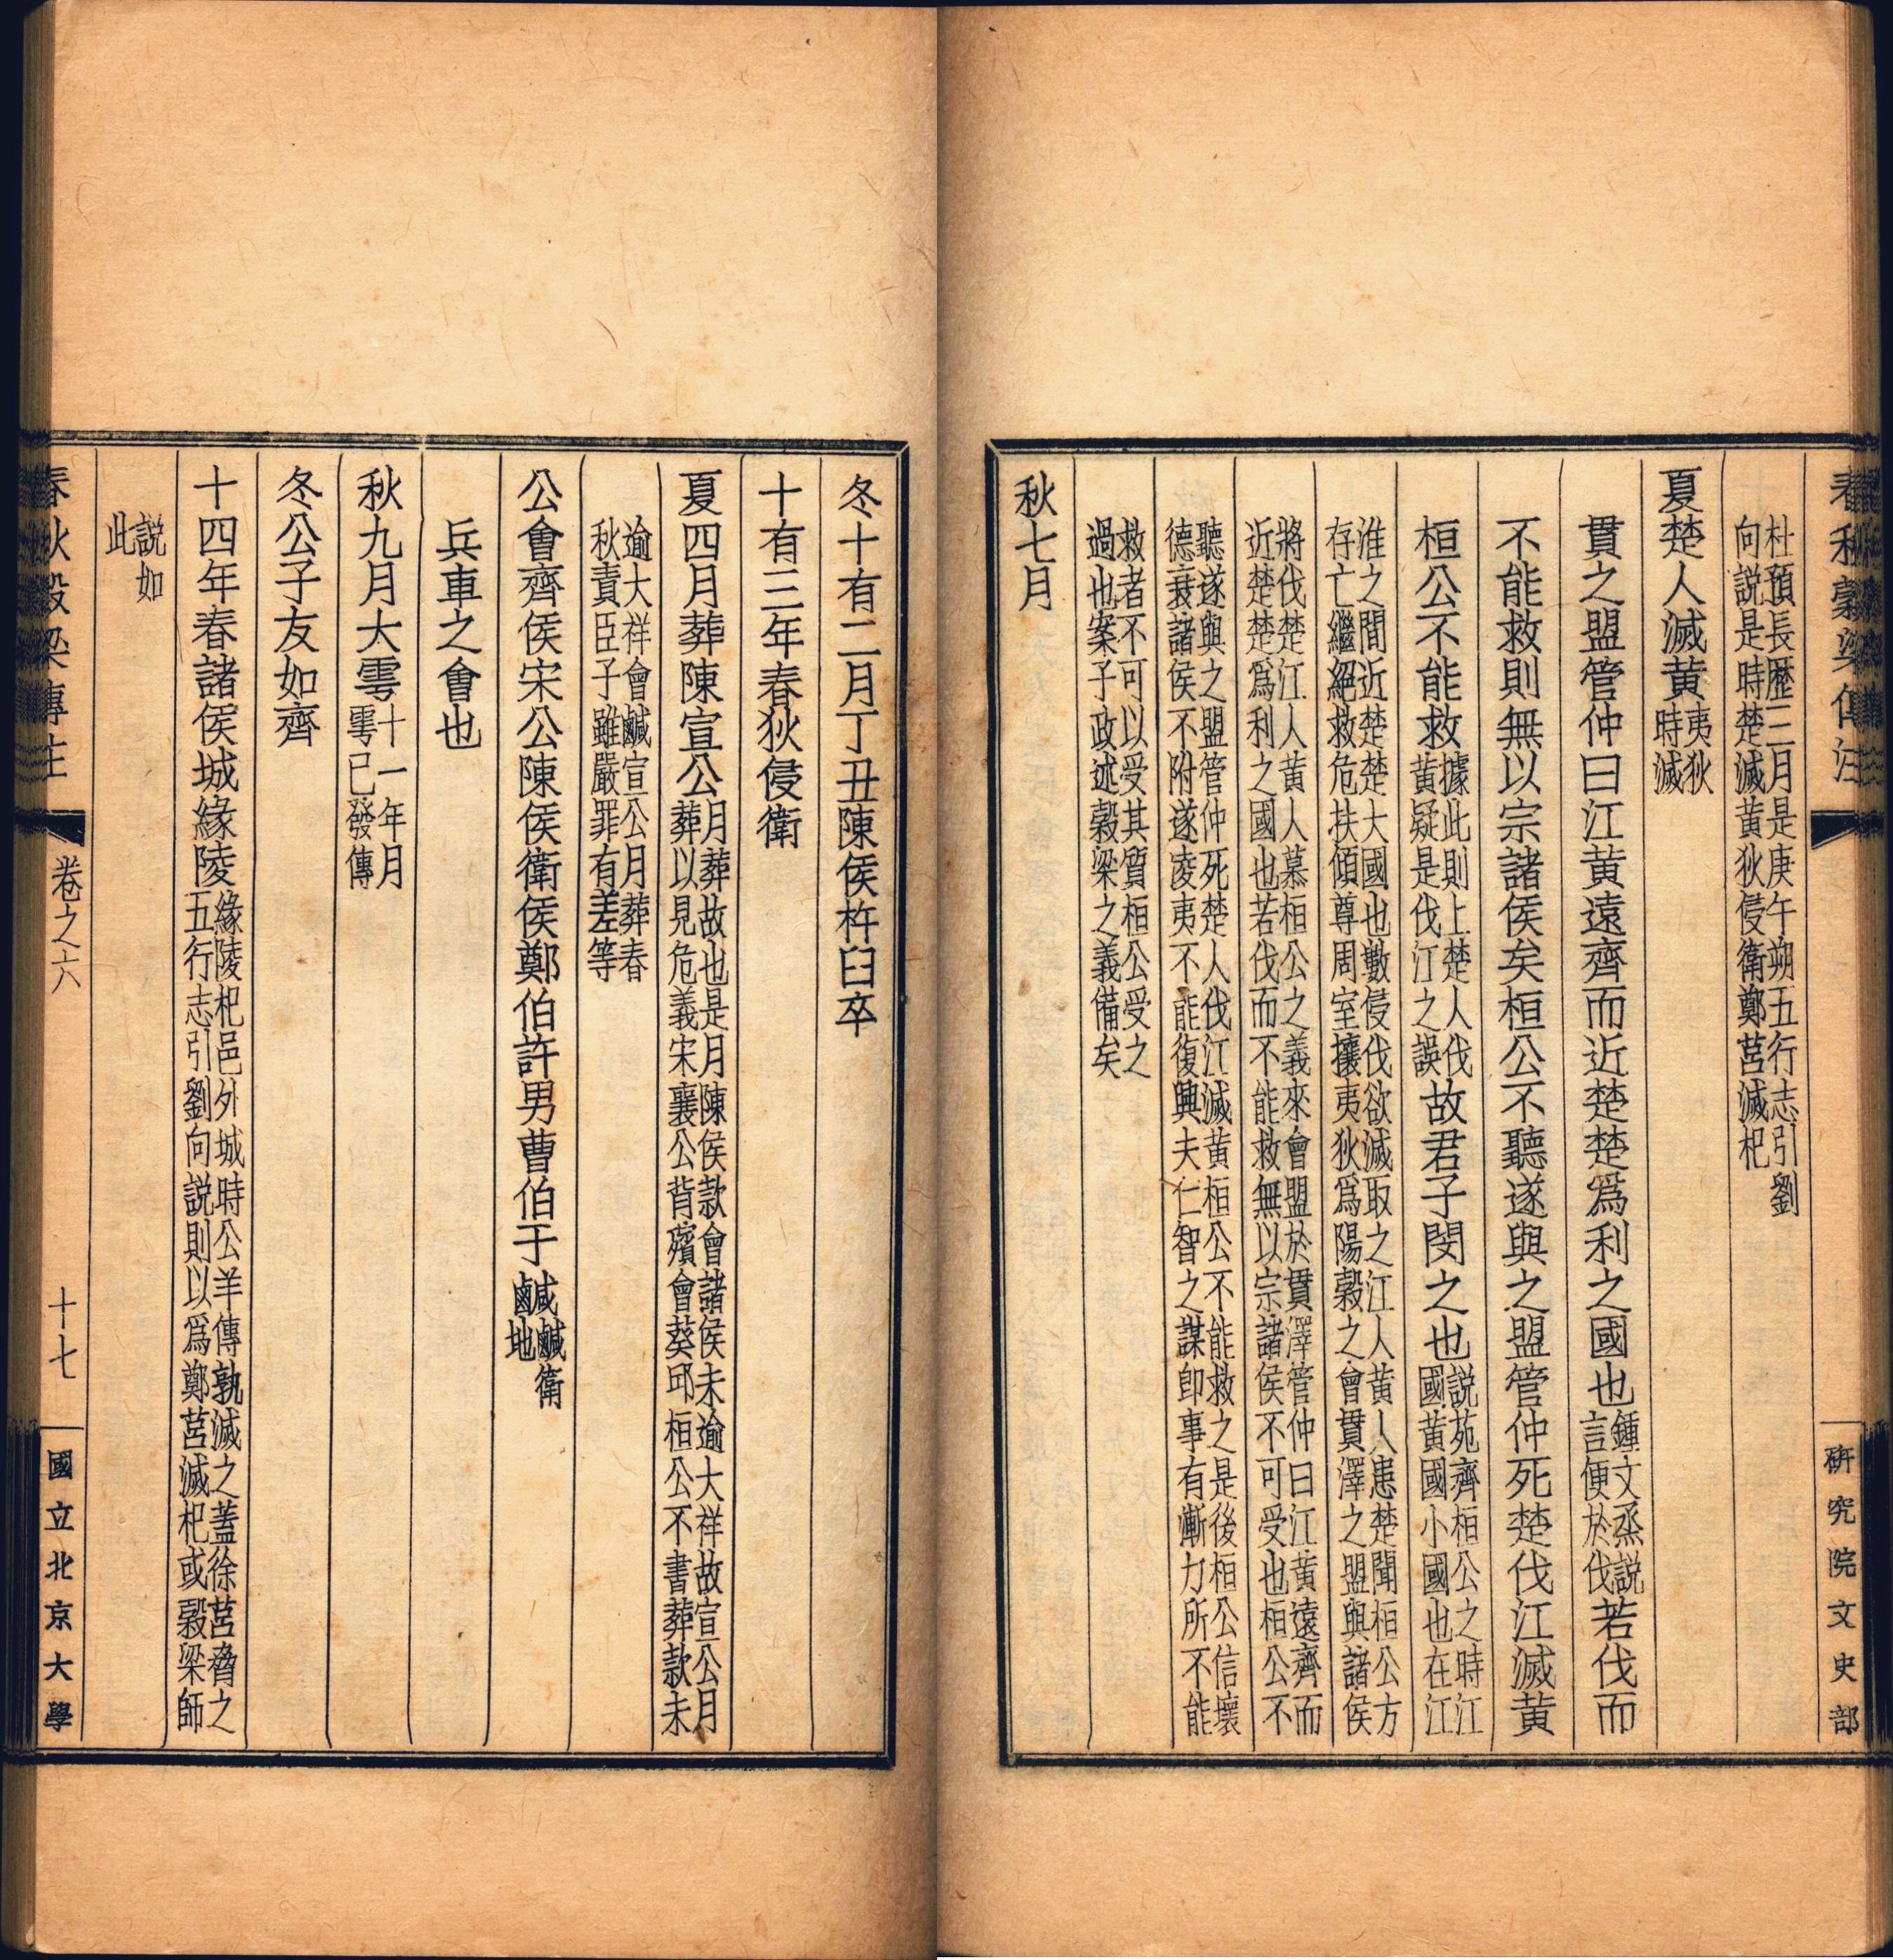 春秋穀梁傳注
研究院文史部
杜預長歷三月是庚午朔五行志引劉
向説是時楚滅黃狄侵衛鄭莒滅杞
夏楚人滅黃夷狄
時滅
貫之盟管仲曰江黃遠齊而近楚楚爲利之國也鍾文烝説
言便於伐若伐而
不能救則無以宗諸侯矣桓公不聽遂與之盟管仲死楚伐江滅黃
桓公不能救據此則上楚人伐
黃疑是伐江之誤故君子閔之也説苑齊桓公之時江
國黃國小國也在江
淮之間近楚楚大國也數侵伐欲滅取之江人黃人患楚聞桓公方
存亡繼絕救危扶傾尊周室攘夷狄爲陽穀之會貫澤之盟與諸侯
將伐楚江人黃人慕桓公之義來會盟於貫澤管仲曰江黃遠齊而
近楚楚爲利之國也若伐而不能救無以宗諸侯不可受也桓公不
聽遂與之盟管仲死楚人伐江滅黃桓公不能救之是後桓公信壞
德衰諸侯不附遂淩夷不能復興夫仁智之謀卽事有漸力所不能
救者不可以受其質桓公受之
過也案子政述穀梁之義備矣
秋七月
冬十有二月丁丑陳侯杵臼卒
十有三年春狄侵衛
夏四月葬陳宣公月葬故也是月陳侯款會諸侯未逾大祥故宣公月
葬以見危義宋襄公背殯會葵邱桓公不書葬款未
逾大祥會鹹宣公月葬春
秋責臣子雖嚴罪有差等
公會齊侯宋公陳侯衛侯鄭伯許男曹伯于鹹鹹衛
地
兵車之會也
秋九月大雩十一年月
雩已發傳
冬公子友如齊
十四年春諸侯城緣陵緣陵杞邑外城時公羊傳孰滅之蓋徐莒脅之
五行志引劉向説則以爲鄭莒滅杞或穀梁師
説如
此
春秋穀梁傳注
卷之六
十七
國立北京大學